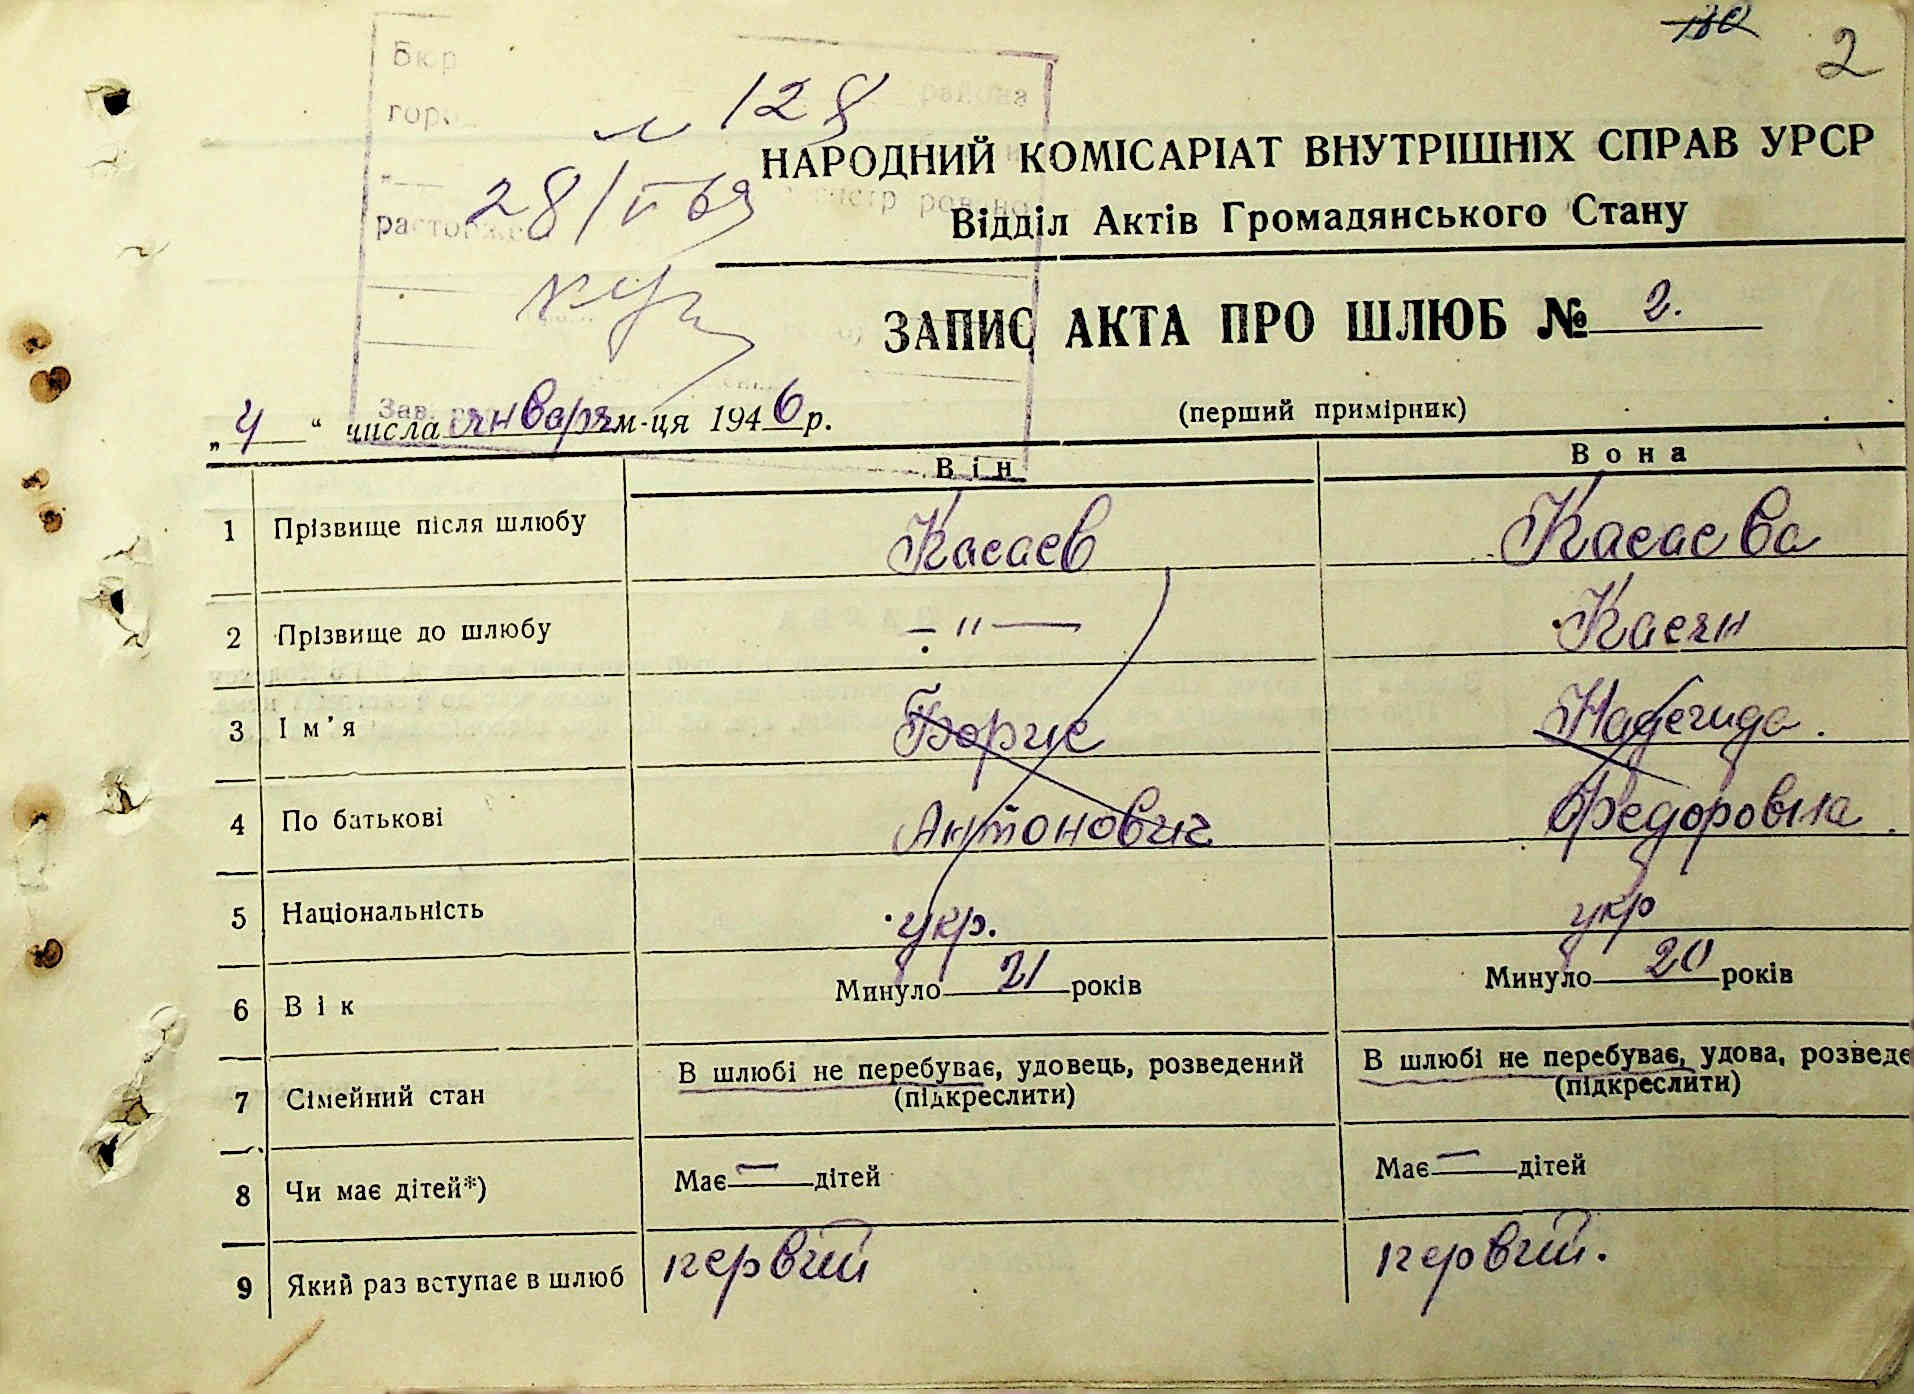 130
2
№ 128
28/V 69
НАРОДНИЙ КОМІСАРІАТ ВНУТРІШНІХ СПРАВ УРСР
Відділ Актів Громадянського Стану
ЗАПИС АКТА ПРО ШЛЮБ № 2.
„4“ числа января м-ця 1946 р.
(перший примірник)
Він Вона
1 Прізвище після шлюбу Касаев Касаева
2 Прізвище до шлюбу — " — Касян
3 Ім'я Борис Надежда.
4 По батькові Антонович Федоровна.
5 Національність укр. укр
6 Вік Минуло 21 років Минуло 20 років
7 Сімейний стан В шлюбі не перебуває, удовець, розведений В шлюбі не перебуває, удова, розведе
(підкреслити) (підкреслити)
8 Чи має дітей*) Має — дітей Має — дітей
9 Який раз вступає в шлюб первий первий.